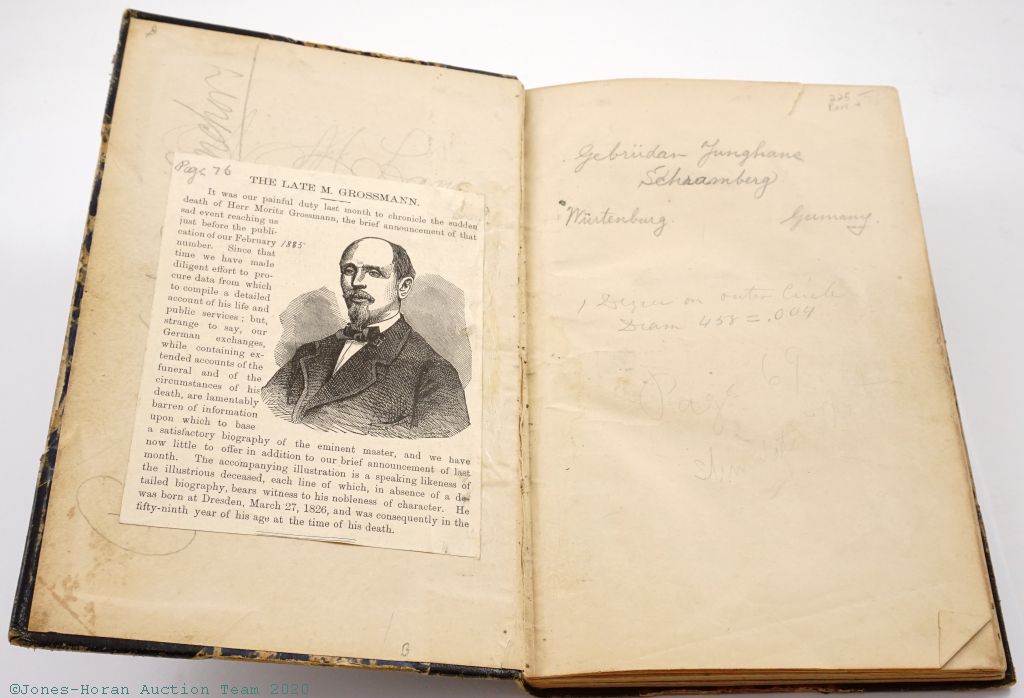 Page 76
THE LATE M. GROSSMANN.
It was our painful duty last month to chronicle the sudden
death of Herr Moritz Grossmann, the brief announcement of that
sad event reaching us
just before the publi-
cation of our February 1885
number. Since that
time we have made
diligent effort to pro-
cure data from which
to compile a detailed
account of his life and
public services; but,
strange to say, our
German exchanges,
while containing ex-
tended accounts of the
funeral and of the
circumstances of his
death, are lamentably
barren of information
upon which to base
a satisfactory biography of the eminent master, and we have
now little to offer in addition to our brief announcement of last
month. The accompanying illustration is a speaking likeness of
the illustrious deceased, each line of which, in absence of a de-
tailed biography, bears witness to his nobleness of character. He
was born at Dresden, March 27, 1826, and was consequently in the
fifty-ninth year of his age at the time of his death.
B
225
Gebrüdan Junghans
Schramberg
Würtenburg. Germany.
on outer Circle
Diam 458 = .004
Page 69
©Jones-Horan Auction Team 2020